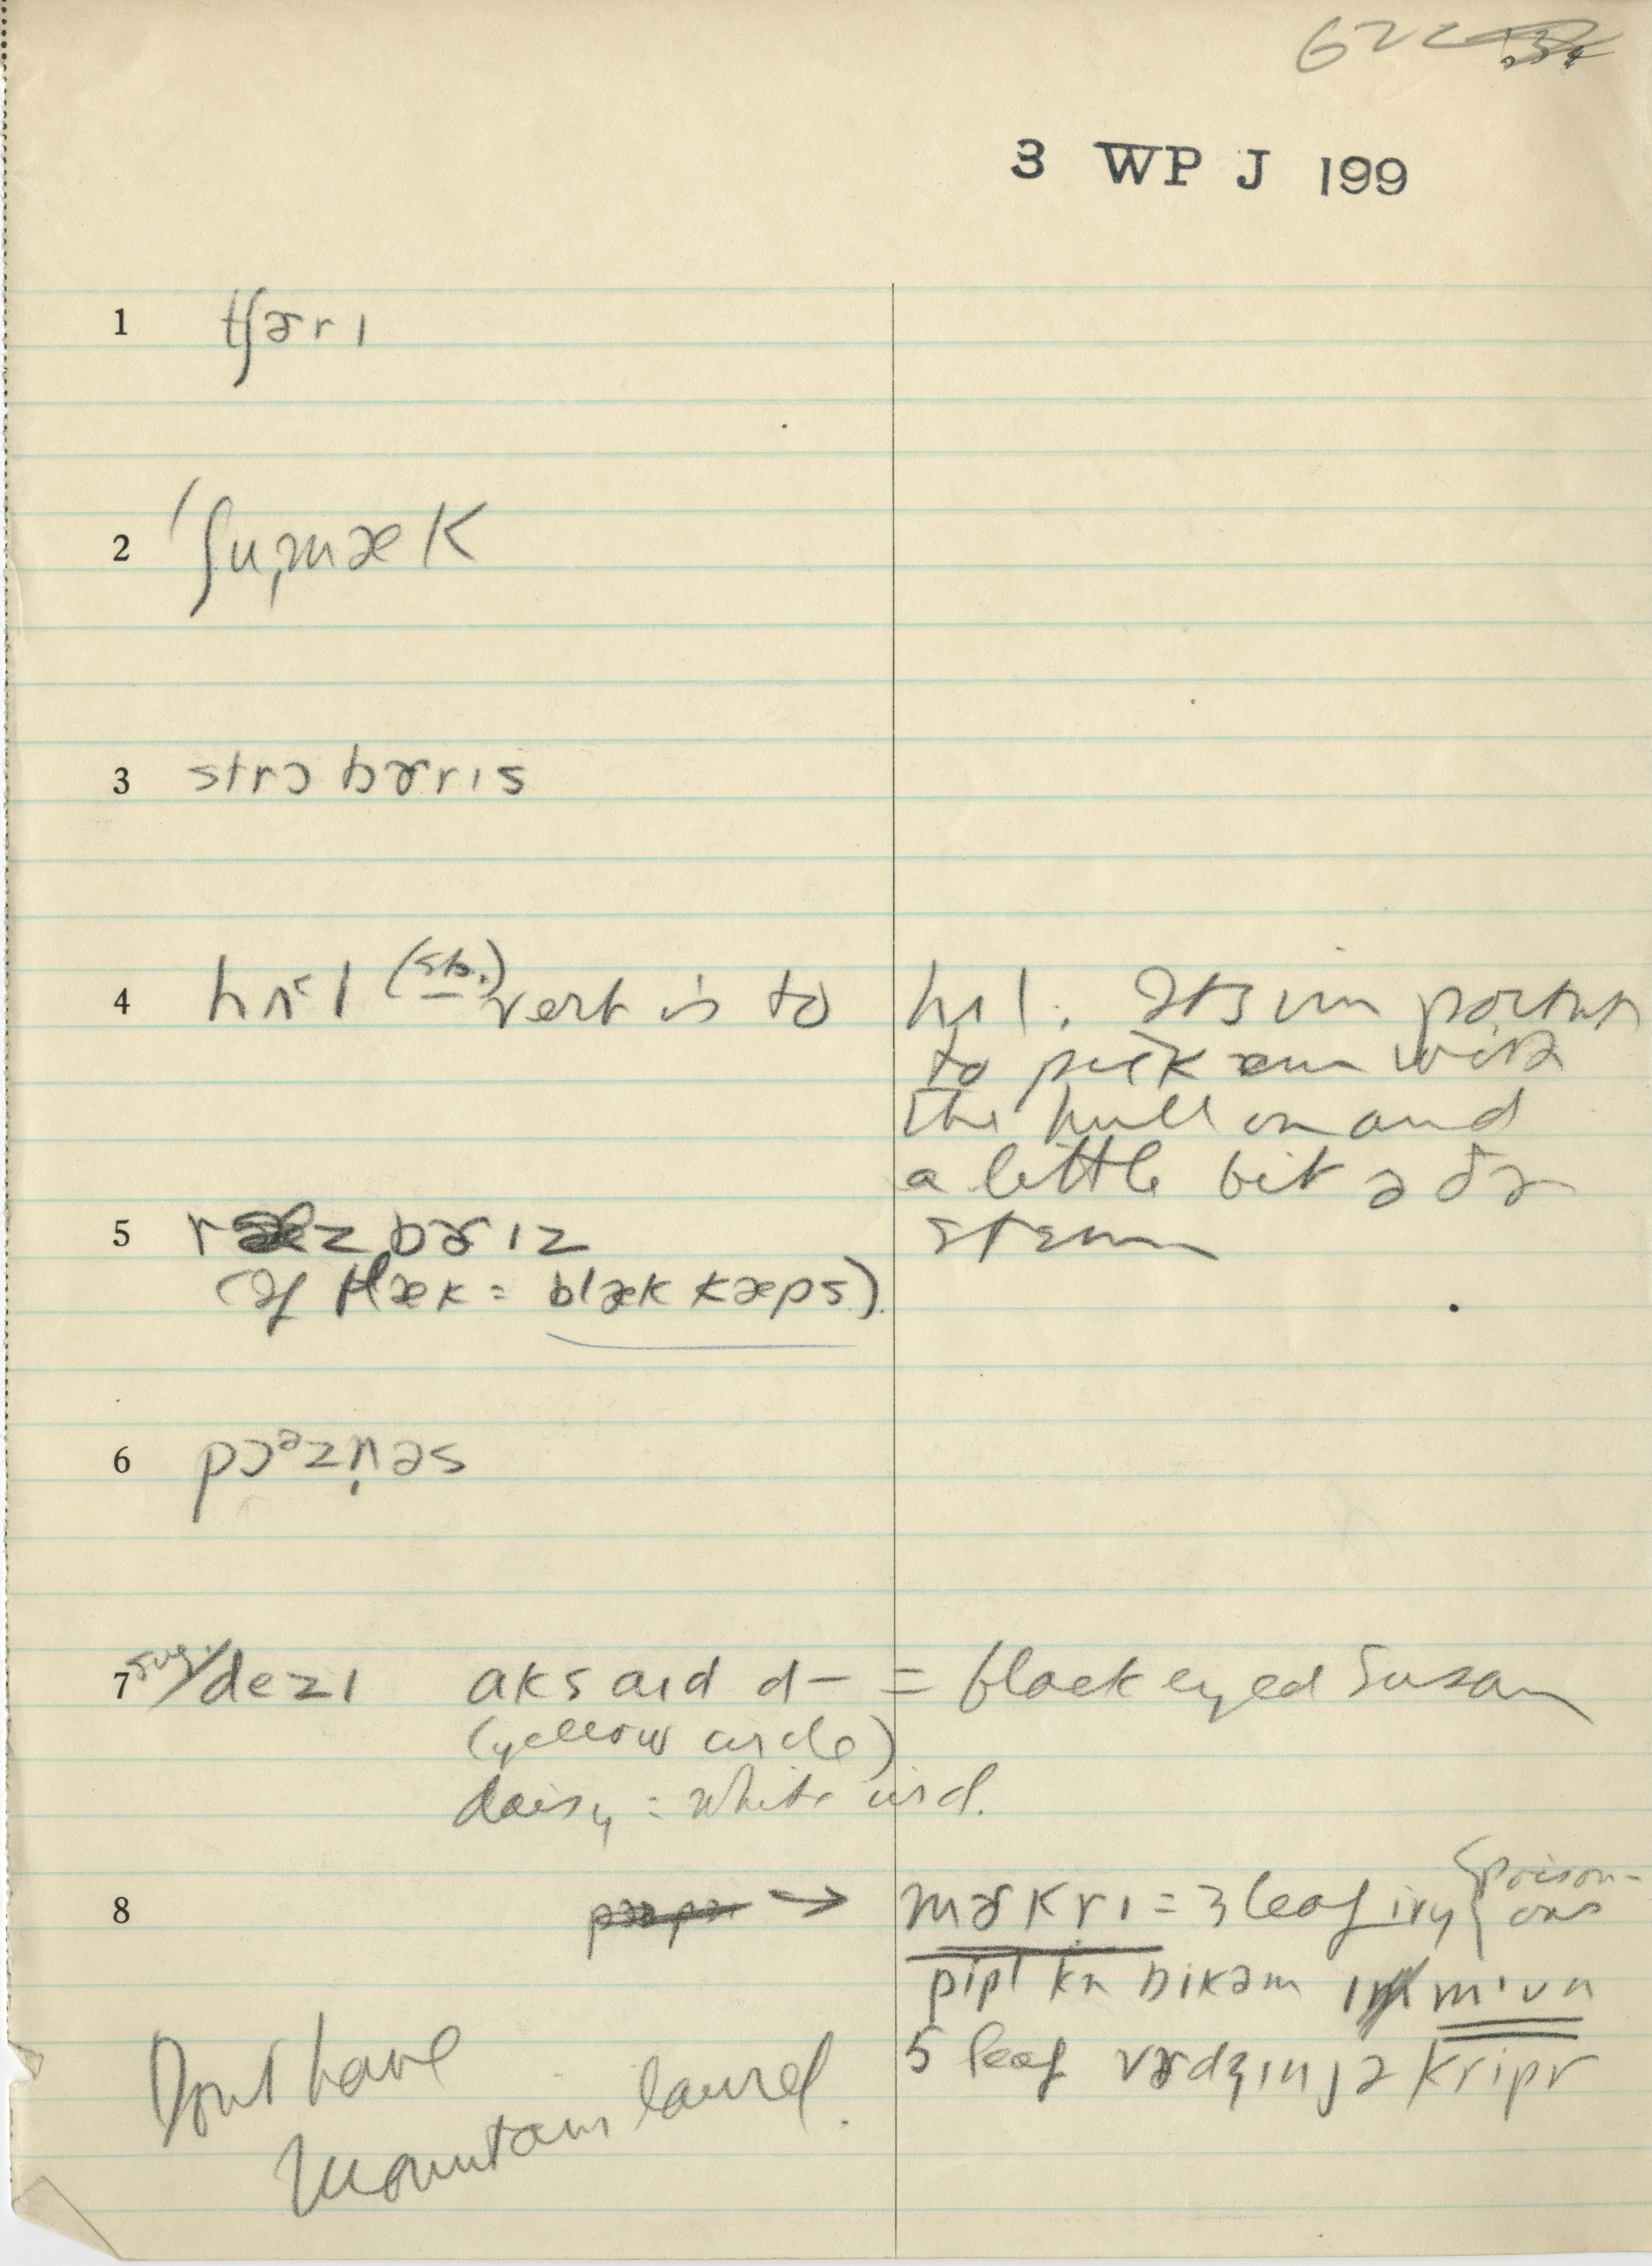 622
3 WP J 199
1 tʃɚrɪ
2 ˈʃuˌmæk
3 strɔbɚrɪs
4 hʌl (sb.) verb is to hʌl. Its important
to pick əm with
the hull on and
a little bit ə ðə
stem
5 ræzbɚɪz
(If blæk = blæk kæps)
6 pɔᵊzn̩əs
7 sug. / dezɪ aksaɪd d– = black eyed Susan
(yellow circle)
daisy = white circl.
8 → mɚkrɪ = 3 leaf ivy {poison-
ous
pipl kn bikəm ɪmiun
5 leaf vɚdʒɪnjə kripr
Dont have
Mountain laurel.